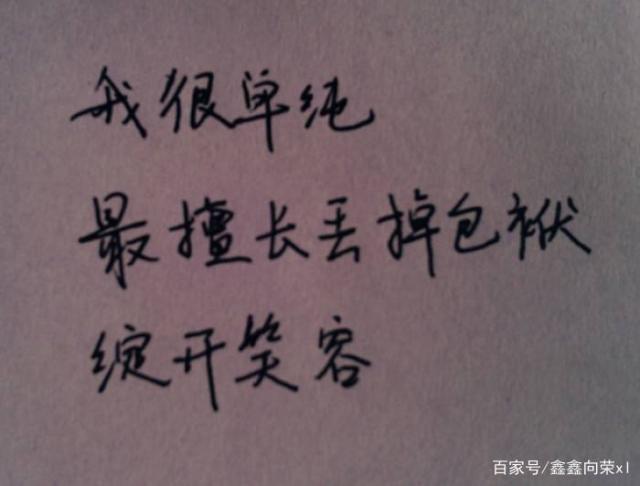 我很单纯
最擅长丢掉包袱
绽开笑容
百家号/鑫鑫向荣xl